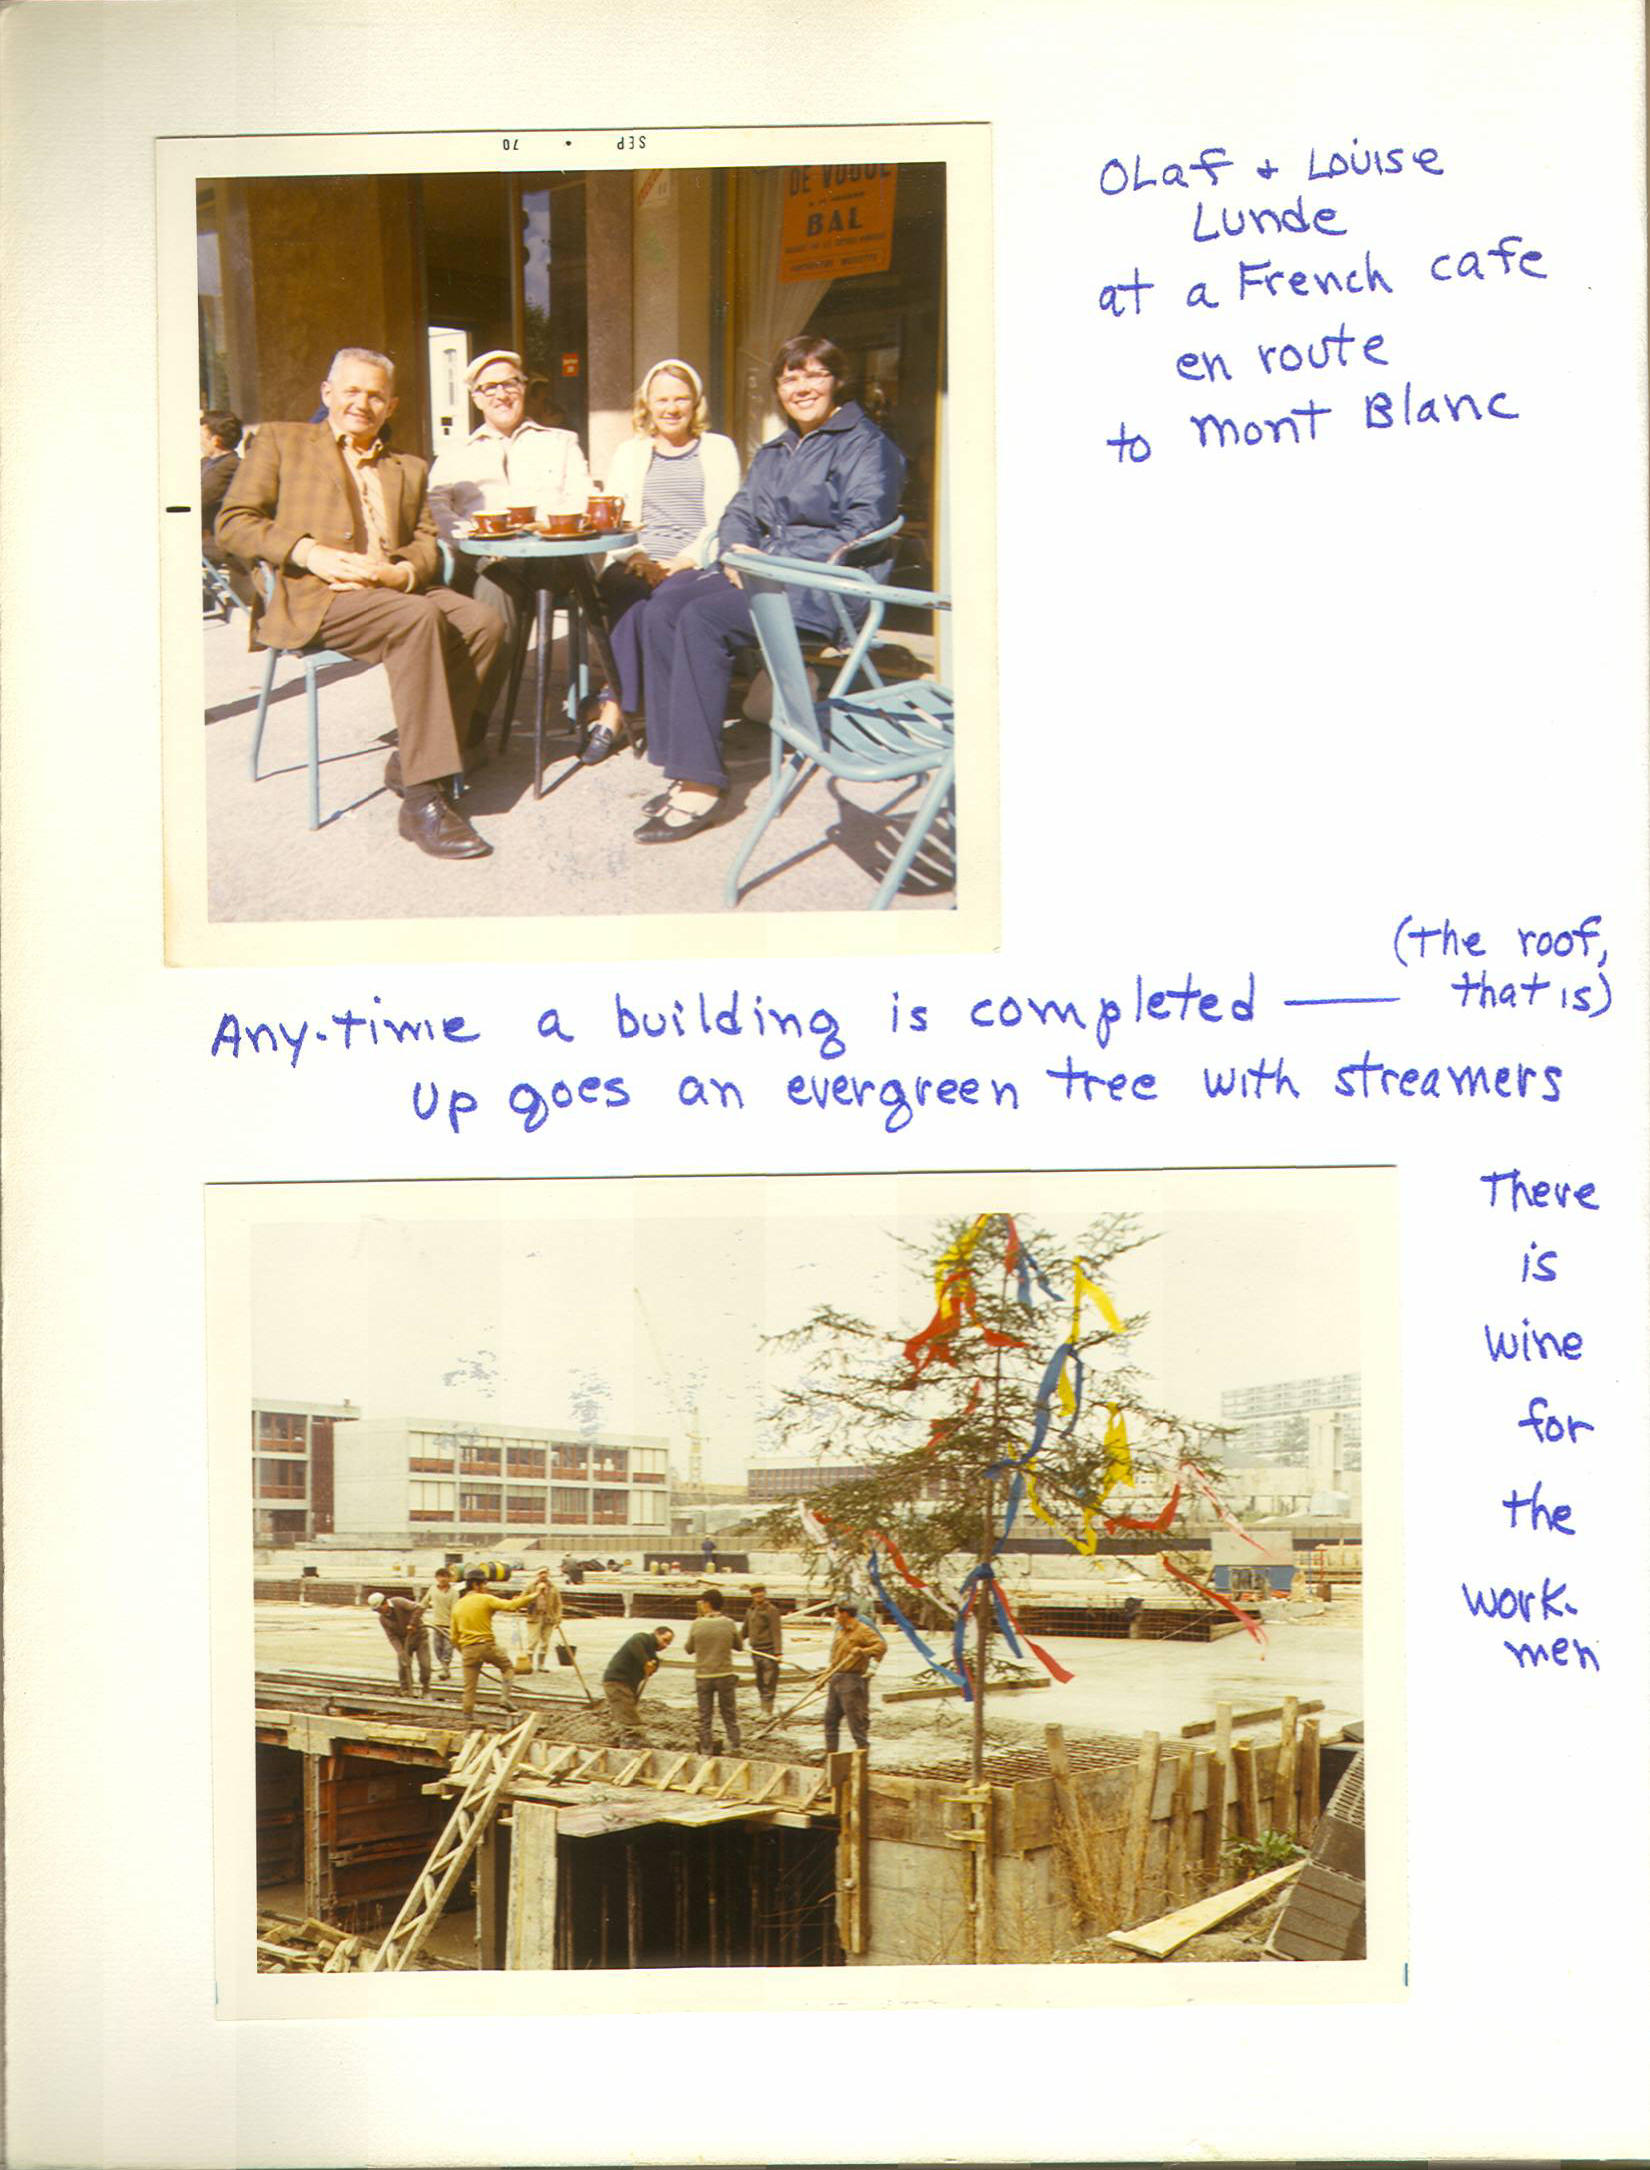 SEP • 70
DE VOGUE
BAL
OLaf + Louise
Lunde
at a French cafe
en route
to Mont Blanc
(the roof,
that is)
Any-time a building is completed ——
Up goes an evergreen tree with streamers
There
is
wine
for
the
work-
men